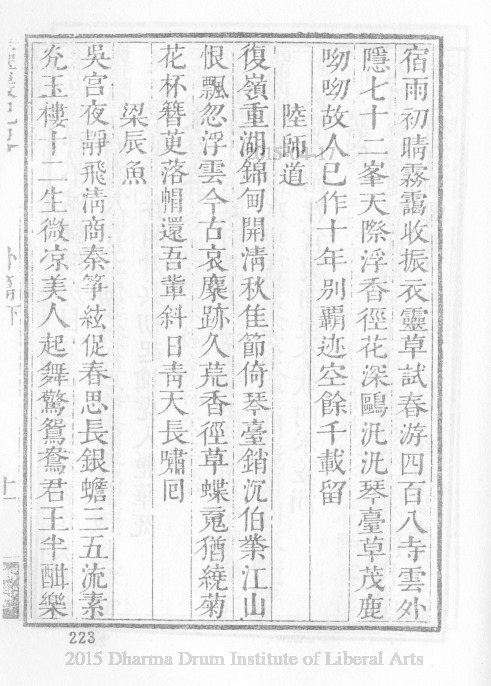 宿雨初晴霧靄收振衣靈草試春游四百八寺雲外
隱七十二峯天際浮香徑花深鷗汎汎琴臺草茂鹿
呦呦故人已作十年別覇迹空餘千載留
陸師道
復嶺重湖錦甸開淸秋佳節倚琴臺銷沉伯業江山
恨飄忽浮雲今古哀麋跡久荒香徑草蝶䰟猶繞菊
花杯簪萸落帽還吾輩斜日靑天長嘯囘
梁辰魚
吳宮夜靜飛淸商秦箏絃促春思長銀蟾三五流素
光玉樓十二生微凉美人起舞驚鴛鴦君王半酣樂
外篇下
十一
223
2015 Dharma Drum Institute of Liberal Arts